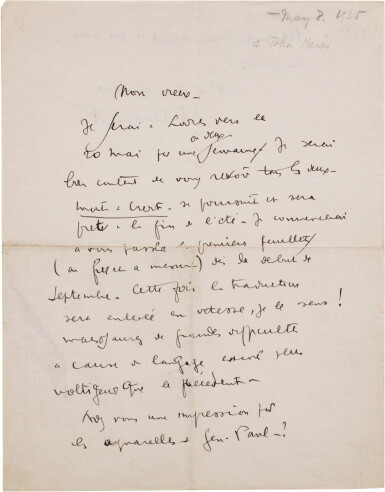 May 8. 1935
à John Marks
Mon vieux -
Je serai à Londres vers le
20 mai pr une ou deux semaines Je serai
bien content de vous revoir tous les deux -
mort à Crédit - se poursuit et sera
prête à la fin de l'été - Je commencerai
à vous passer les premiers feuillets
(au fur et à mesure) dès le début de
Septembre - Cette fois la traduction
sera enlevée en vitesse, je le sens !
mais j'aurai de grandes difficultés
à cause du langage encore plus
voltigeur que le précédent -
Avez vous une impression sur
les aquarelles de Gen. Paul - ?